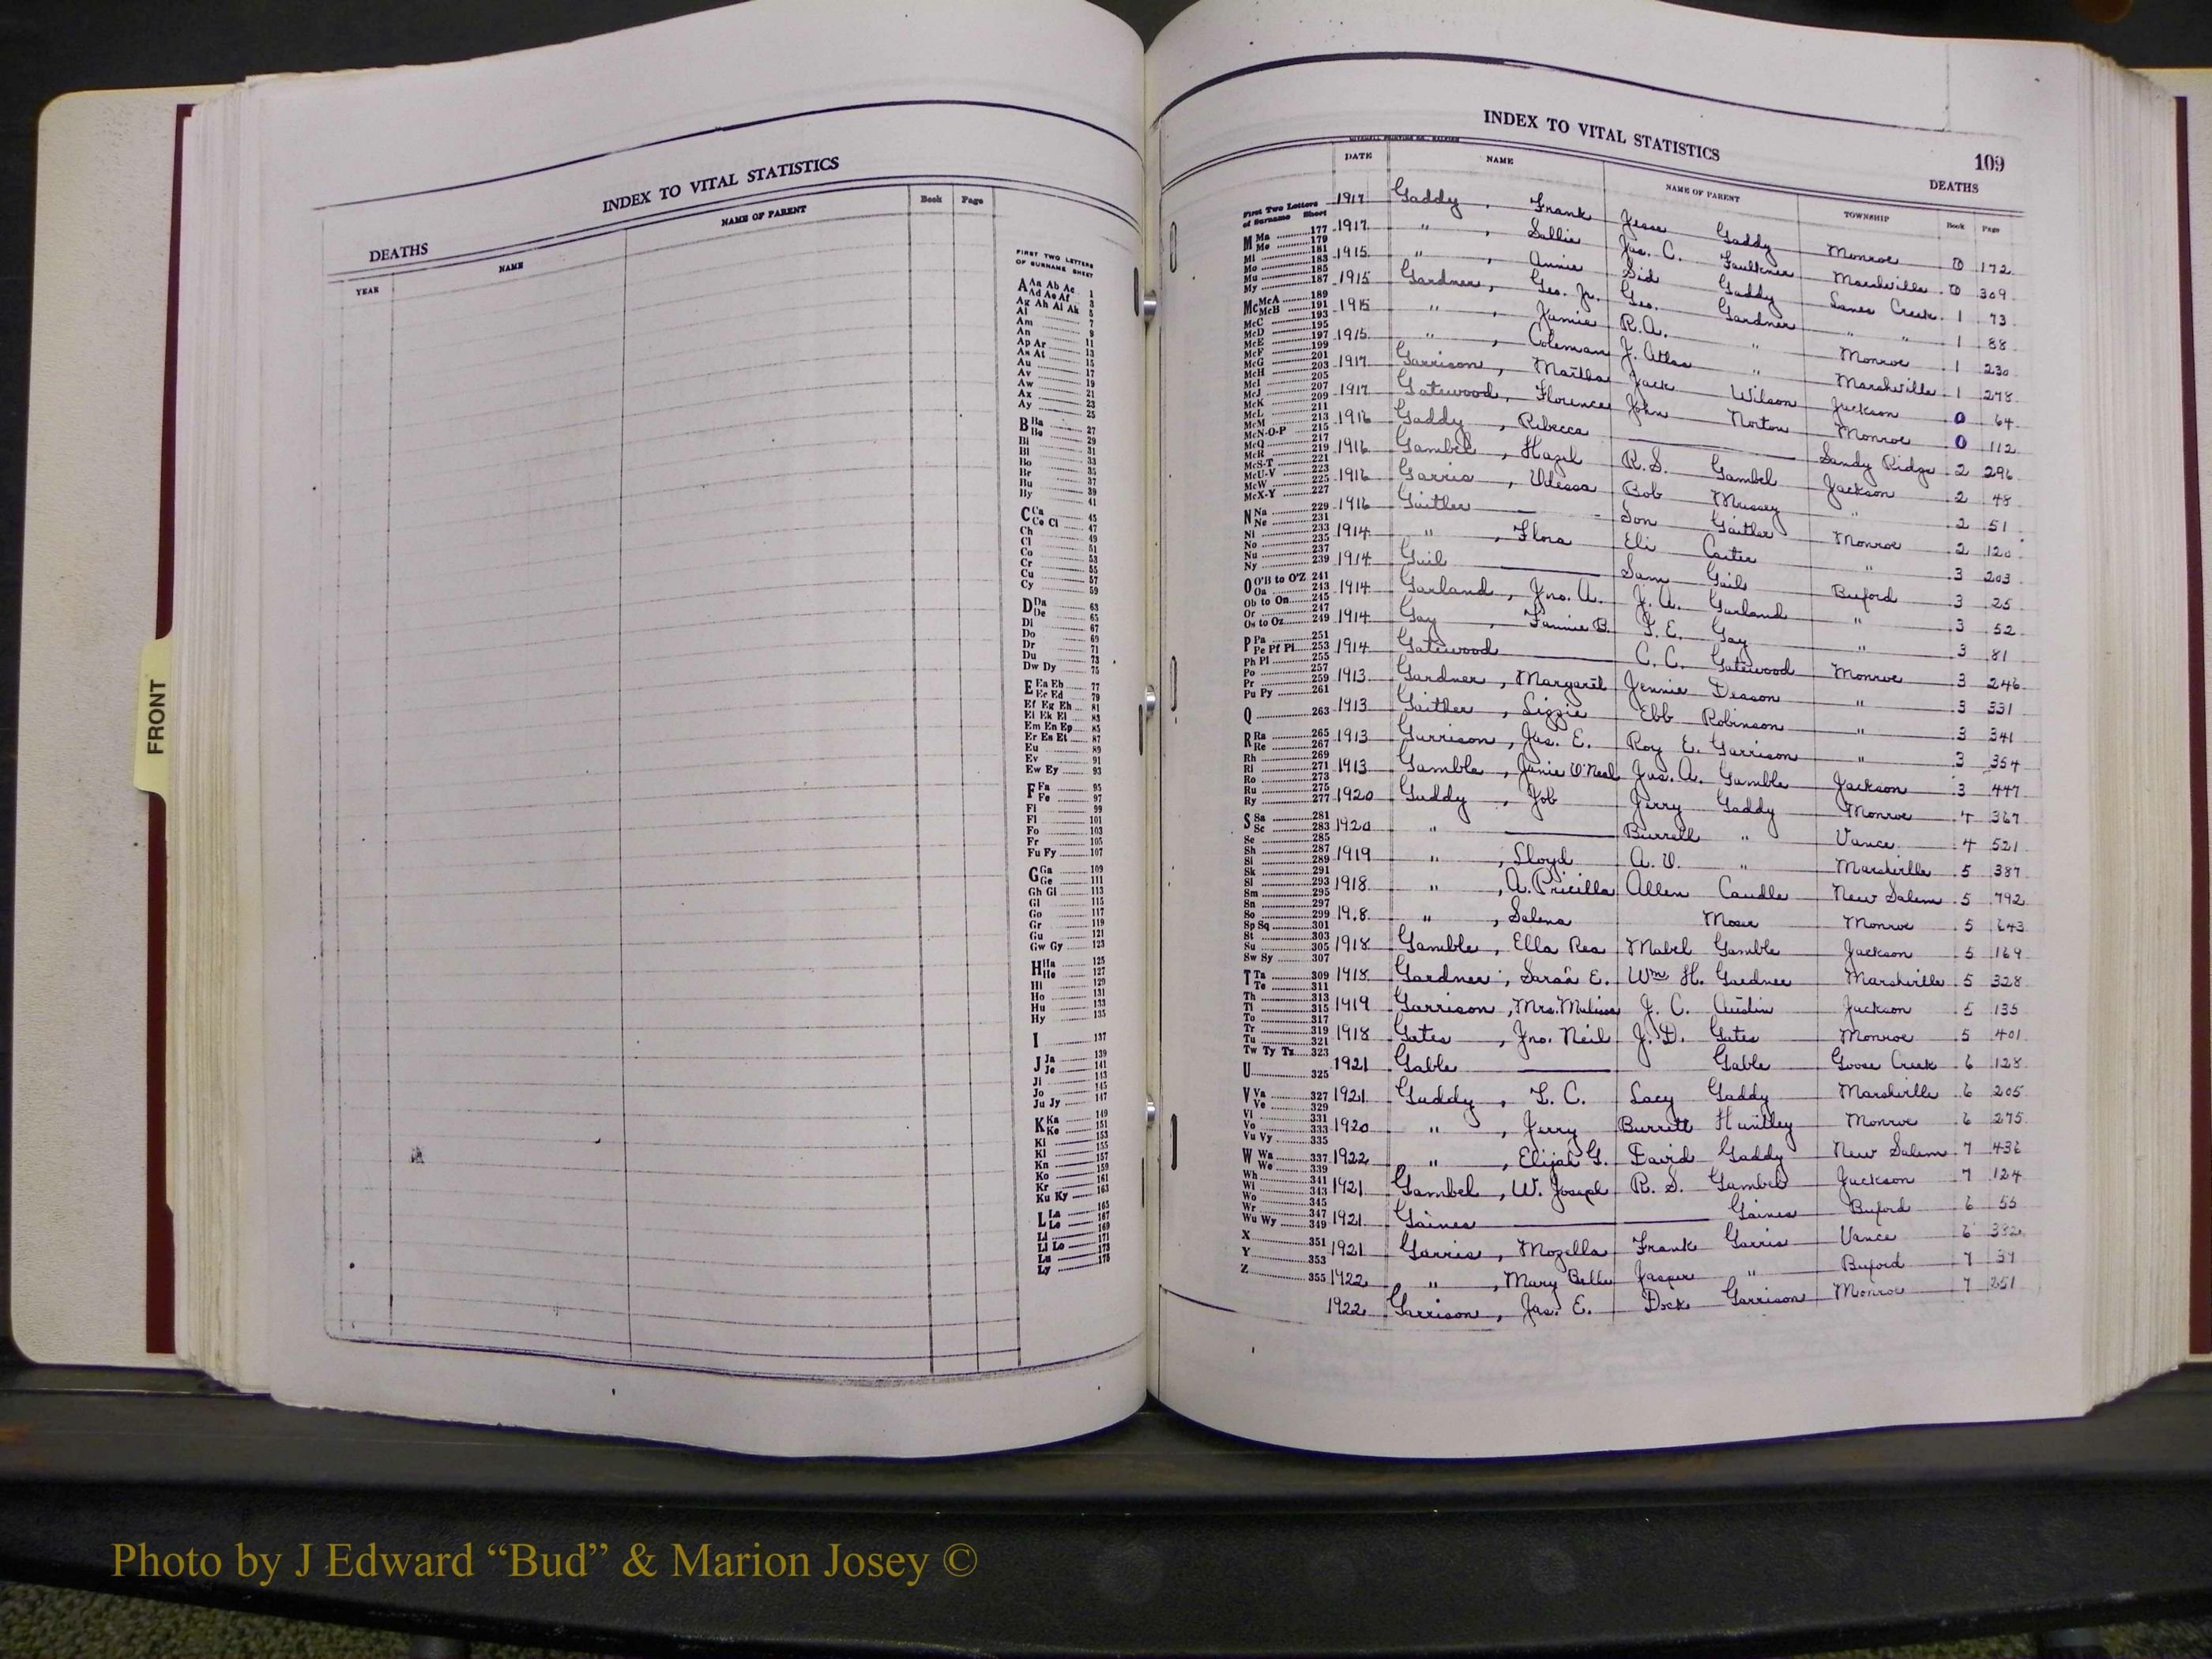 INDEX TO VITAL STATISTICS
DEATHS
YEAR NAME NAME OF PARENT Book Page
FIRST TWO LETTERS
OF SURNAME SHEET
A Aa Ab Ac 1
Ad Ae Af 3
Ag Ah Ai Ak 5
Al 7
Am 9
An 11
Ap Ar 13
As At 15
Au 17
Av 19
Aw 21
Ax 23
Ay 25
B Ba 27
Be 29
Bi 31
Bl 33
Bo 35
Br 37
Bu 39
By 41
C Ca 45
Ce Ci 47
Ch 49
Cl 51
Co 53
Cr 55
Cu 57
Cy 59
D Da 63
De 65
Di 67
Do 69
Dr 71
Du 73
Dw Dy 75
E Ea Eb 77
Ec Ed 79
Ef Eg Eh 81
Ei Ek El 83
Em En Ep 85
Er Es Et 87
Eu 89
Ev 91
Ew Ey 93
F Fa 95
Fe 97
Fi 99
Fl 101
Fo 103
Fr 105
Fu Fy 107
G Ga 109
Ge 111
Gh Gi 113
Gl 115
Go 117
Gr 119
Gu 121
Gw Gy 123
H Ha 125
He 127
Hi 129
Ho 131
Hu 133
Hy 135
I 137
J Ja 139
Je 141
Ji 143
Jo 145
Ju Jy 147
K Ka 149
Ke 151
Ki 153
Kl 155
Kn 157
Ko 159
Kr 161
Ku Ky 163
L La 165
Le 167
Li 169
Ll Lo 171
Lu 173
Ly 175
FRONT
INDEX TO VITAL STATISTICS
109
DEATHS
DATE NAME NAME OF PARENT TOWNSHIP Book Page
First Two Letters
of Surname Sheet
M Ma 177
Me 179
Mi 181
Mo 183
Mu 185
My 187
Mc McA 189
McB 191
McC 193
McD 195
McE 197
McF 199
McG 201
McH 203
McI 205
McJ 207
McK 209
McL 211
McM 213
McN-O-P 215
McQ 217
McR 219
McS-T 221
McU-V 223
McW 225
McX-Y 227
N Na 229
Ne 231
Ni 233
No 235
Nu 237
Ny 239
O O'B to O'Z 241
Oa 243
Ob to On 245
Or 247
Os to Oz 249
P Pa 251
Pe Pf Pi 253
Ph Pl 255
Po 257
Pr 259
Pu Py 261
Q 263
R Ra 265
Re 267
Rh 269
Ri 271
Ro 273
Ru 275
Ry 277
S Sa 281
Sc 283
Se 285
Sh 287
Si 289
Sk 291
Sl 293
Sm 295
Sn 297
So 299
Sp Sq 301
St 303
Su 305
Sw Sy 307
T Ta 309
Te 311
Th 313
Ti 315
To 317
Tr 319
Tu 321
Tw Ty Tz 323
U 325
V Va 327
Ve 329
Vi 331
Vo 333
Vu Vy 335
W Wa 337
We 339
Wh 341
Wi 343
Wo 345
Wr 347
Wu Wy 349
X 351
Y 353
Z 355
1917 Gaddy, Frank Jesse Gaddy Monroe 0 172
1917 ", Sallie Jas. C. Faulkner Marshville 0 309
1915 ", Annie Sid Gaddy Lanes Creek 1 73
1915 Gardner, Geo. Jr. Geo. Gardner " 1 88
1915 ", Jamie R.A. " Monroe 1 230
1915 ", Coleman J. Atlas " Marshville 1 278
1917 Garrison, Martha Jack Wilson Jackson 0 64
1917 Gatewood, Florence John Norton Monroe 0 112
1916 Gaddy, Rebecca Sandy Ridge 2 296
1916 Gambel, Hazel R.S. Gambel Jackson 2 48
1916 Garris, Odessa Bob Mussey " 2 51
1916 Gaither Son Gaither Monroe 2 120
1914 ", Flora Eli Carter " 3 203
1914 Gail Sam Gail Buford 3 25
1914 Garland, Jno. A. J. A. Garland " 3 52
1914 Gay, Fannie B. T. E. Gay " 3 81
1914 Gatewood C. C. Gatewood Monroe 3 246
1913 Gardner, Margaret Jennie Deason " 3 331
1913 Gaither, Lizzie Ebb Robinson " 3 341
1913 Garrison, Jas. E. Roy E. Garrison " 3 354
1913 Gamble, Janie O'Neal Jas. A. Gamble Jackson 3 447
1920 Gaddy, Job Jerry Gaddy Monroe 4 367
1920 " Burrell " Vance 4 521
1919 ", Lloyd A. V. " Marshville 5 387
1918 ", A. Pricilla Allen Caudle New Salem 5 792
19.8 ", Salena Moser Monroe 5 643
1918 Gamble, Ella Rea Mabel Gamble Jackson 5 169
1918 Gardner, Sarah E. Wm H. Gardner Marshville 5 328
1919 Garrison, Mrs. Malissa J. C. Austin Jackson 5 135
1918 Gates, Jno. Neil J. D. Gates Monroe 5 401
1921 Gable Gable Goose Creek 6 128
1921 Gaddy, T. C. Lacy Gaddy Marshville 6 205
1920 ", Jerry Burrett Huntley Monroe 6 275
1922 ", Elijah G. David Gaddy New Salem 7 436
1921 Gambel, W. Joseph R. S. Gambel Jackson 7 124
1921 Gaines Gaines Buford 6 55
1921 Garris, Mozella Frank Garris Vance 6 382
1922 ", Mary Belle Jasper " Buford 7 37
1922 Garrison, Jas. E. Dock Garrison Monroe 7 251
Photo by J Edward “Bud” & Marion Josey ©